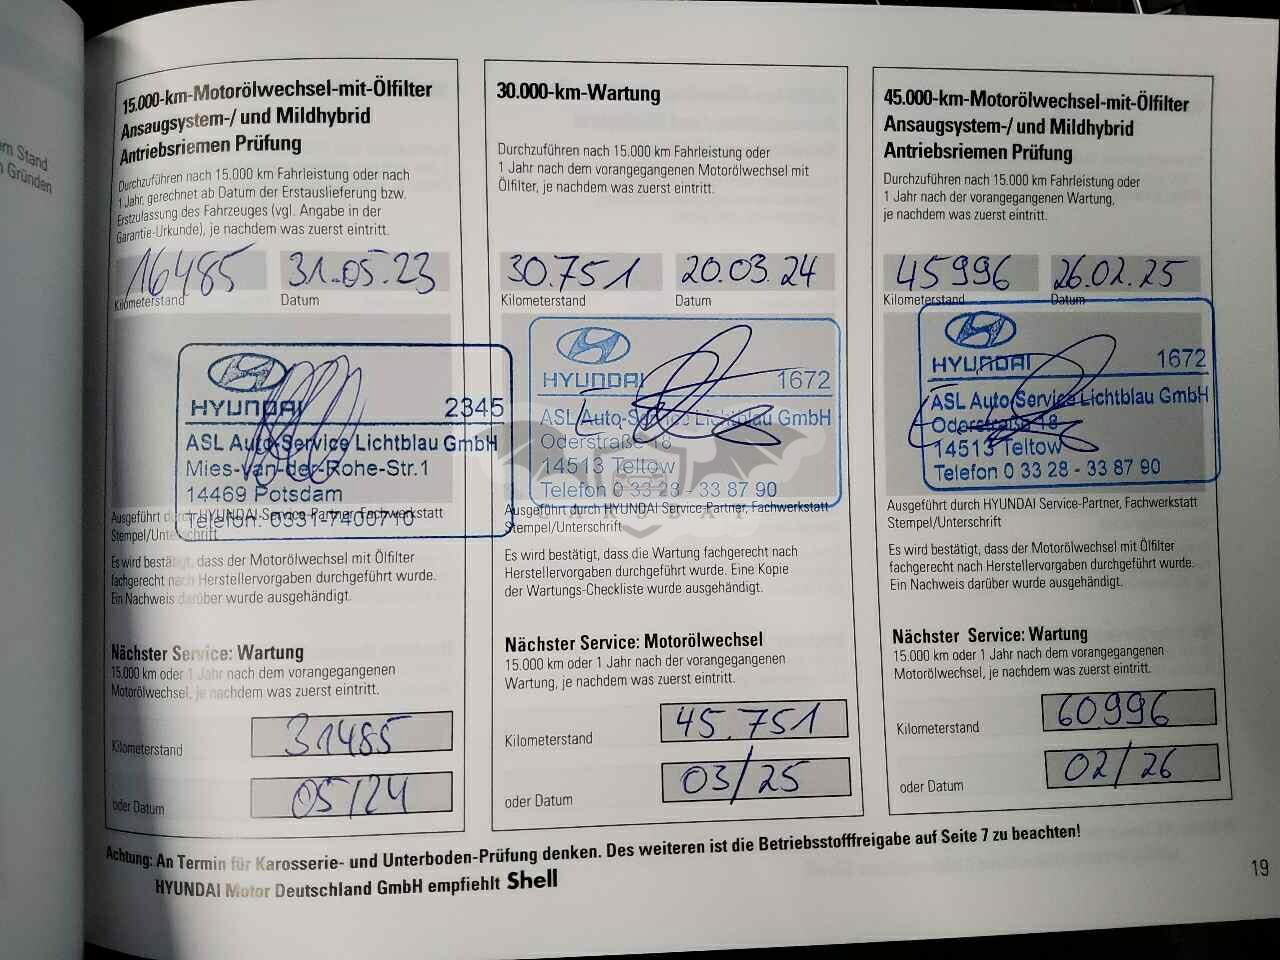 em Stand
n Gründen
15.000-km-Motorölwechsel-mit-Ölfilter
Ansaugsystem-/ und Mildhybrid
Antriebsriemen Prüfung
Durchzuführen nach 15.000 km Fahrleistung oder nach
1 Jahr, gerechnet ab Datum der Erstauslieferung bzw.
Erstzulassung des Fahrzeuges (vgl. Angabe in der
Garantie-Urkunde), je nachdem was zuerst eintritt.
16485 31.05.23
Kilometerstand Datum
HYUNDAI 2345
ASL Auto-Service Lichtblau GmbH
Mies-van-der-Rohe-Str.1
14469 Potsdam
Telefon: 0331-7400710
Ausgeführt durch HYUNDAI Service-Partner, Fachwerkstatt
Stempel/Unterschrift
Es wird bestätigt, dass der Motorölwechsel mit Ölfilter
fachgerecht nach Herstellervorgaben durchgeführt wurde.
Ein Nachweis darüber wurde ausgehändigt.
Nächster Service: Wartung
15.000 km oder 1 Jahr nach dem vorangegangenen
Motorölwechsel, je nachdem was zuerst eintritt.
Kilometerstand 31485
oder Datum 05/24
30.000-km-Wartung
Durchzuführen nach 15.000 km Fahrleistung oder
1 Jahr nach dem vorangegangenen Motorölwechsel mit
Ölfilter, je nachdem was zuerst eintritt.
30.751 20.03.24
Kilometerstand Datum
HYUNDAI 1672
ASL Auto-Service Lichtblau GmbH
Oderstraße 18
14513 Teltow
Telefon 0 33 28 - 33 87 90
Ausgeführt durch HYUNDAI Service-Partner, Fachwerkstatt
Stempel/Unterschrift
CAROBAT
Es wird bestätigt, dass die Wartung fachgerecht nach
Herstellervorgaben durchgeführt wurde. Eine Kopie
der Wartungs-Checkliste wurde ausgehändigt.
Nächster Service: Motorölwechsel
15.000 km oder 1 Jahr nach der vorangegangenen
Wartung, je nachdem was zuerst eintritt.
Kilometerstand 45.751
oder Datum 03/25
45.000-km-Motorölwechsel-mit-Ölfilter
Ansaugsystem-/ und Mildhybrid
Antriebsriemen Prüfung
Durchzuführen nach 15.000 km Fahrleistung oder
1 Jahr nach der vorangegangenen Wartung,
je nachdem was zuerst eintritt.
45996 26.02.25
Kilometerstand Datum
HYUNDAI 1672
ASL Auto Service Lichtblau GmbH
Oderstraße 18
14513 Teltow
Telefon 0 33 28 - 33 87 90
Ausgeführt durch HYUNDAI Service-Partner, Fachwerkstatt
Stempel/Unterschrift
Es wird bestätigt, dass der Motorölwechsel mit Ölfilter
fachgerecht nach Herstellervorgaben durchgeführt wurde.
Ein Nachweis darüber wurde ausgehändigt.
Nächster Service: Wartung
15.000 km oder 1 Jahr nach dem vorangegangenen
Motorölwechsel, je nachdem was zuerst eintritt.
Kilometerstand 60996
oder Datum 02/26
Achtung: An Termin für Karosserie- und Unterboden-Prüfung denken. Des weiteren ist die Betriebsstofffreigabe auf Seite 7 zu beachten!
HYUNDAI Motor Deutschland GmbH empfiehlt Shell
19